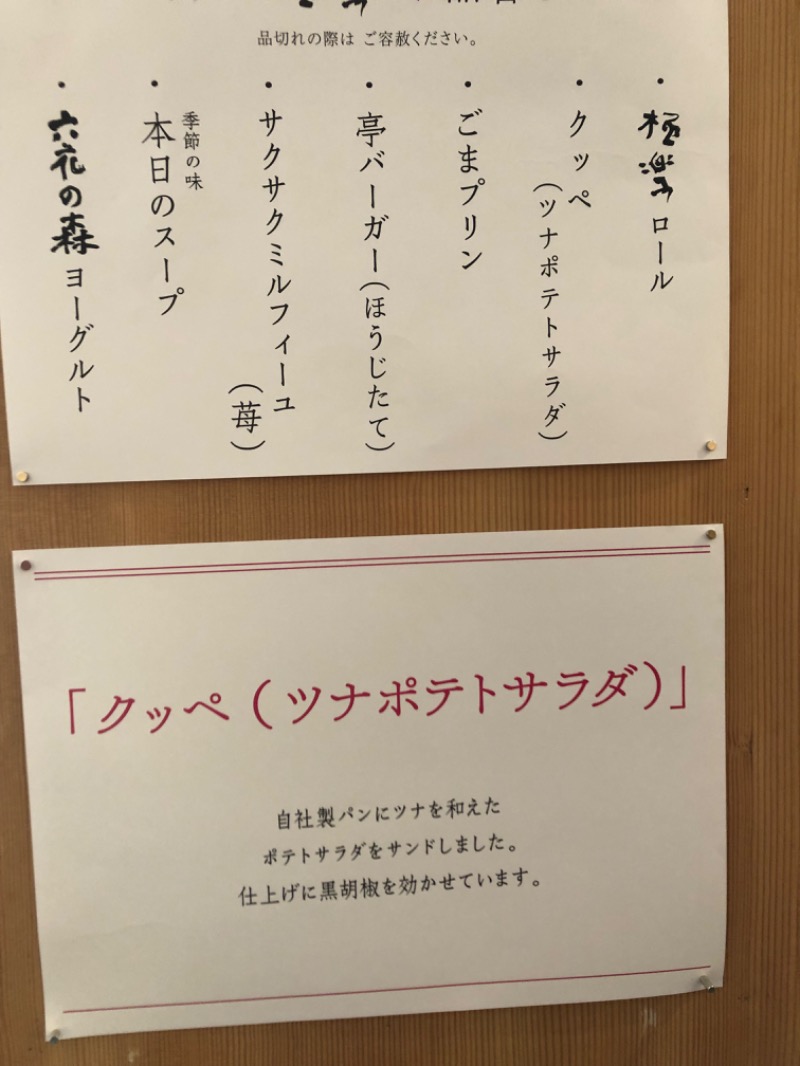 品切れの際は ご容赦ください。
・極楽ロール
・クッペ
（ツナポテトサラダ）
・ごまプリン
・亭バーガー（ほうじたて）
・サクサクミルフィーユ
（苺）
季節の味
・本日のスープ
・六花の森ヨーグルト
「クッペ（ツナポテトサラダ）」
自社製パンにツナを和えた
ポテトサラダをサンドしました。
仕上げに黒胡椒を効かせています。